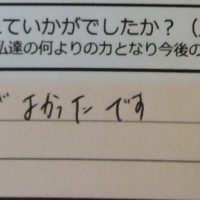 ていかがでしたか？（
私達の何よりの力となり今後の
が よかった です